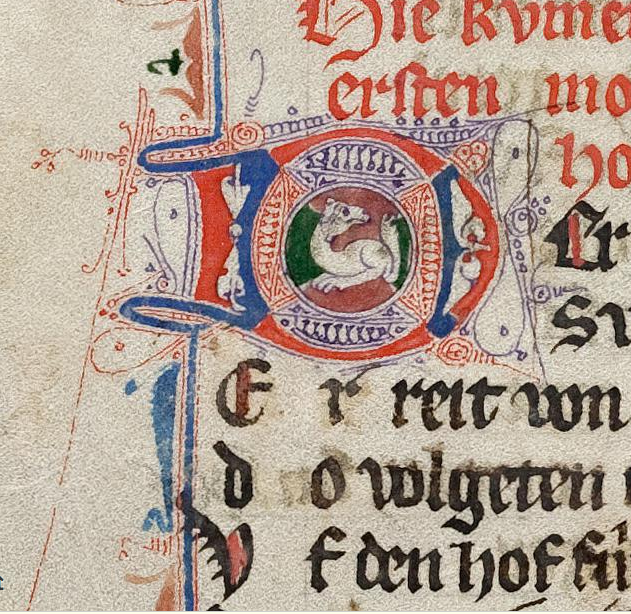 Hie kvme
ersten mo
ho
D Er
Sv
Er reit von
do volgeten
Vf den hof fü